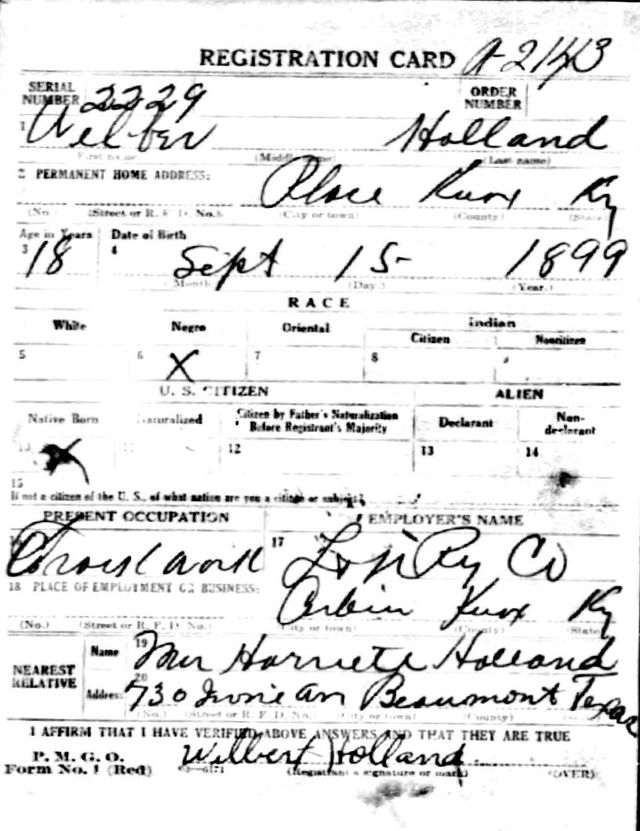 REGISTRATION CARD A-2143
SERIAL NUMBER 2229 ORDER NUMBER
1 Wilber Holland
First name (Middle name) (Last name)
2 PERMANENT HOME ADDRESS:
Place Knox Ky
(No.) (Street or R. F. D. No.) (City or town) (County) (State)
Age in Years Date of Birth
3 18 4 Sept 15 - 1899
Month (Day.) (Year.)
RACE
White Negro Oriental Indian
Citizen Noncitizen
5 6 X 7 8
U. S. CITIZEN ALIEN
Native Born Naturalized Citizen by Father's Naturalization Before Registrant's Majority Declarant Non-declarant
10 X 12 13 14
15
If not a citizen of the U. S., of what nation are you a citizen or subject?
PRESENT OCCUPATION EMPLOYER'S NAME
17 Ry Co
18 PLACE OF EMPLOYMENT OR BUSINESS:
Corbin Knox Ky
(No.) (Street or R. F. D. No.) (City or town) (County) (State)
NEAREST RELATIVE
Name 19 Harriete Holland
Address 20 730 Beaumont Texas
(No.) (Street or R. F. D. No.) (City or town) (County) (State)
I AFFIRM THAT I HAVE VERIFIED ABOVE ANSWERS AND THAT THEY ARE TRUE
P. M. G. O.
Form No. 1 (Red) Wilbert Holland
(Registrant's signature or mark) (OVER)